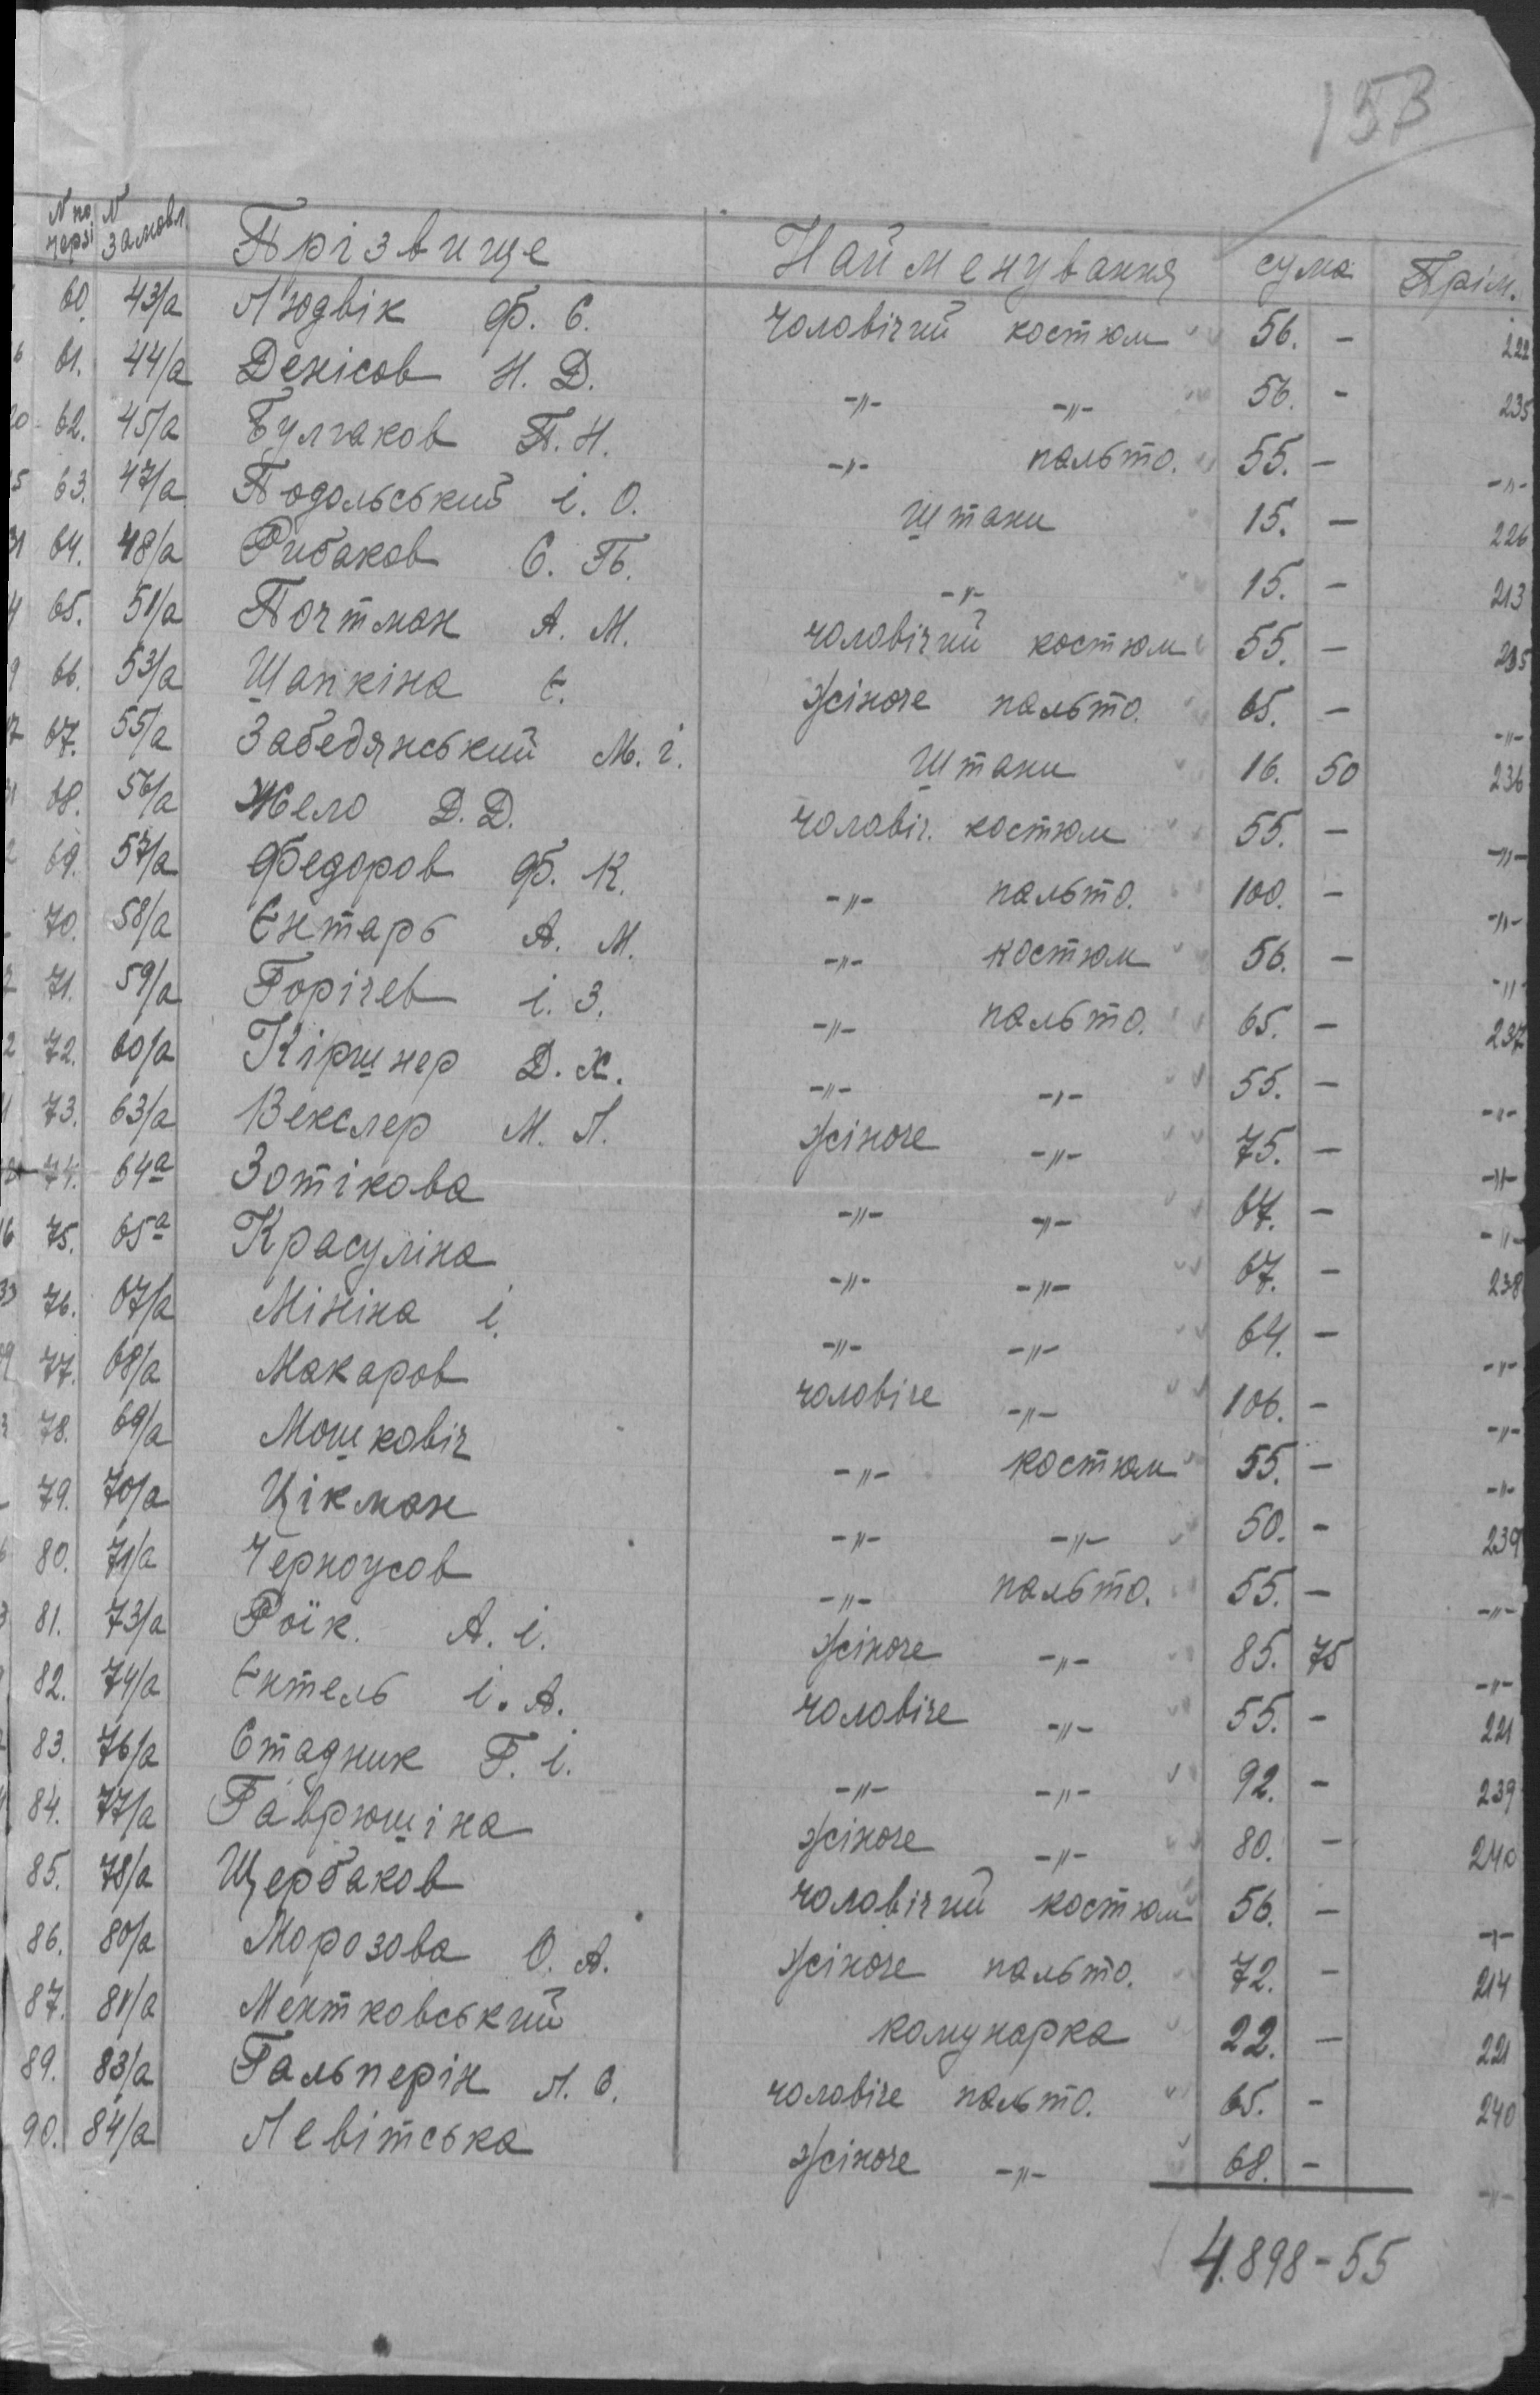 153
N по черзі N замовл. Прізвище Найменування сума Прім.
60. 43/а Людвік Ф. С. чоловічий костюм 56. - 222
61. 44/а Денісов Н. Д. -"- -"- 56. - 235
62. 45/а Булгаков П. Н. -"- пальто. 55. - -"-
63. 47/а Подольський І. О. штани 15. - 226
64. 48/а Рибаков С. Б. -"- 15. - 213
65. 51/а Почтман А. М. чоловічий костюм 55. -
66. 53/а Шапкіна Є. жіноче пальто. 65. - -"-
67. 55/а Забедянський М. І. штани 16. 50 236
68. 56/а Жело Д. Д. чоловіч. костюм 55. - -"-
69. 57/а Федоров Ф. К. -"- пальто. 100. - -"-
70. 58/а Ентарь А. М. -"- костюм 56. - -"-
71. 59/а Горічев І. З. -"- пальто. 65. - 237
72. 60/а Кіршнер Д. Х. -"- -"- 55. - -"-
73. 63/а Векслер М. Л. жіноче -"- 75. - -"-
74. 64а Зотікова -"- -"- 67. - -"-
75. 65а Красуліна -"- -"- 67. - 238
76. 67/а Мініна І. -"- -"- 64. - -"-
77. 68/а Макаров чоловіче -"- 106. - -"-
78. 69/а Мошковіч -"- костюм 55. - -"-
79. 70/а Цікман -"- -"- 50. - 239
80. 71/а Черноусов -"- пальто. 55. - -"-
81. 73/а Роїк. А. І. жіноче -"- 85. 75 -"-
82. 74/а Ентель І. А. чоловіче -"- 55. - 221
83. 76/а Стадник Г. І. -"- -"- 92. - 239
84. 77/а Гаврюшіна жіноче -"- 80. - 240
85. 78/а Щербаков чоловічий костюм 56. - -"-
86. 80/а Морозова О. А. жіноче пальто. 72. - 214
87. 81/а Ментковський комунарка 22. - 221
89. 83/а Гальперін Л. О. чоловіче пальто. 65. - 240
90. 84/а Левітська жіноче -"- 68. - -"-
4.898-55